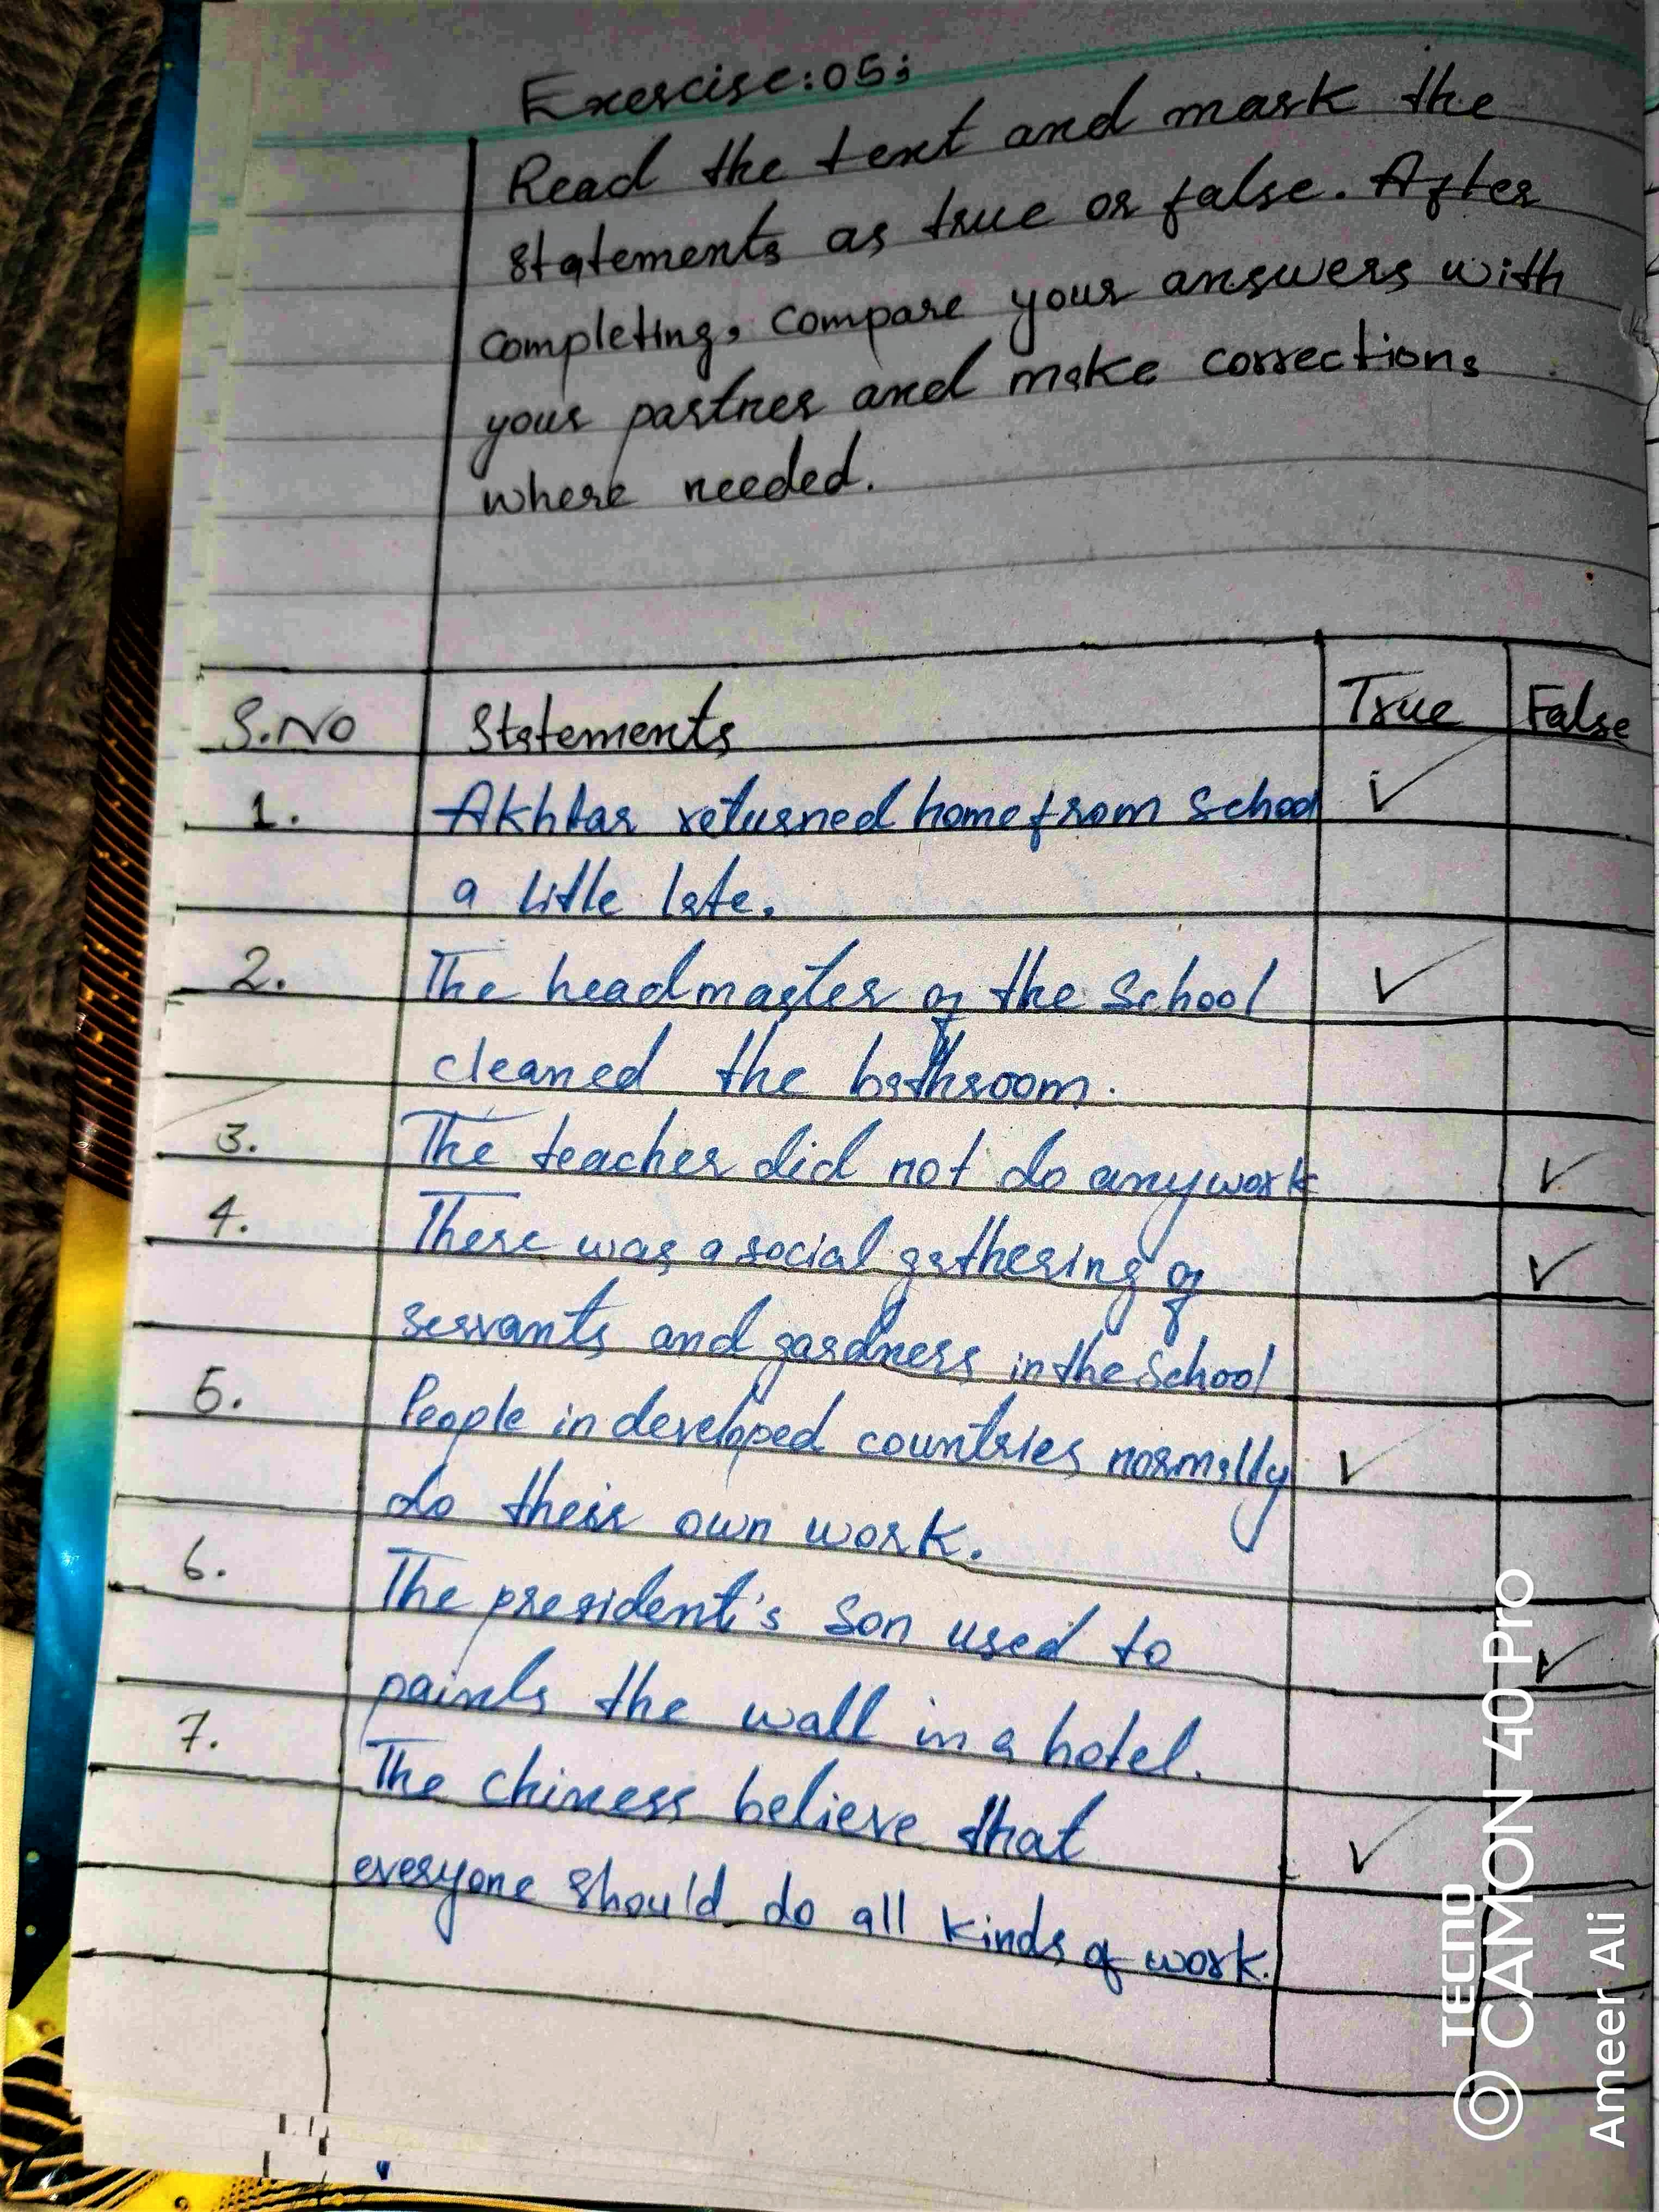 Exercise:05:
Read the text and mark the
statements as true or false. After
completing, compare your answers with
your partner and make corrections
where needed.
S.NO Statements True False
1. Akhtar returned home from School ✓
a little late.
2. The headmaster of the School ✓
cleaned the bathroom.
3. The teacher did not do any work ✓
4. There was a social gathering of ✓
servants and gardners in the School
5. People in developed countries normally ✓
do their own work.
6. The president's Son used to ✓
paints the wall in a hotel.
7. The chiness believe that ✓
everyone should do all kinds of work.
TECNO
CAMON 40 Pro
Ameer Ali